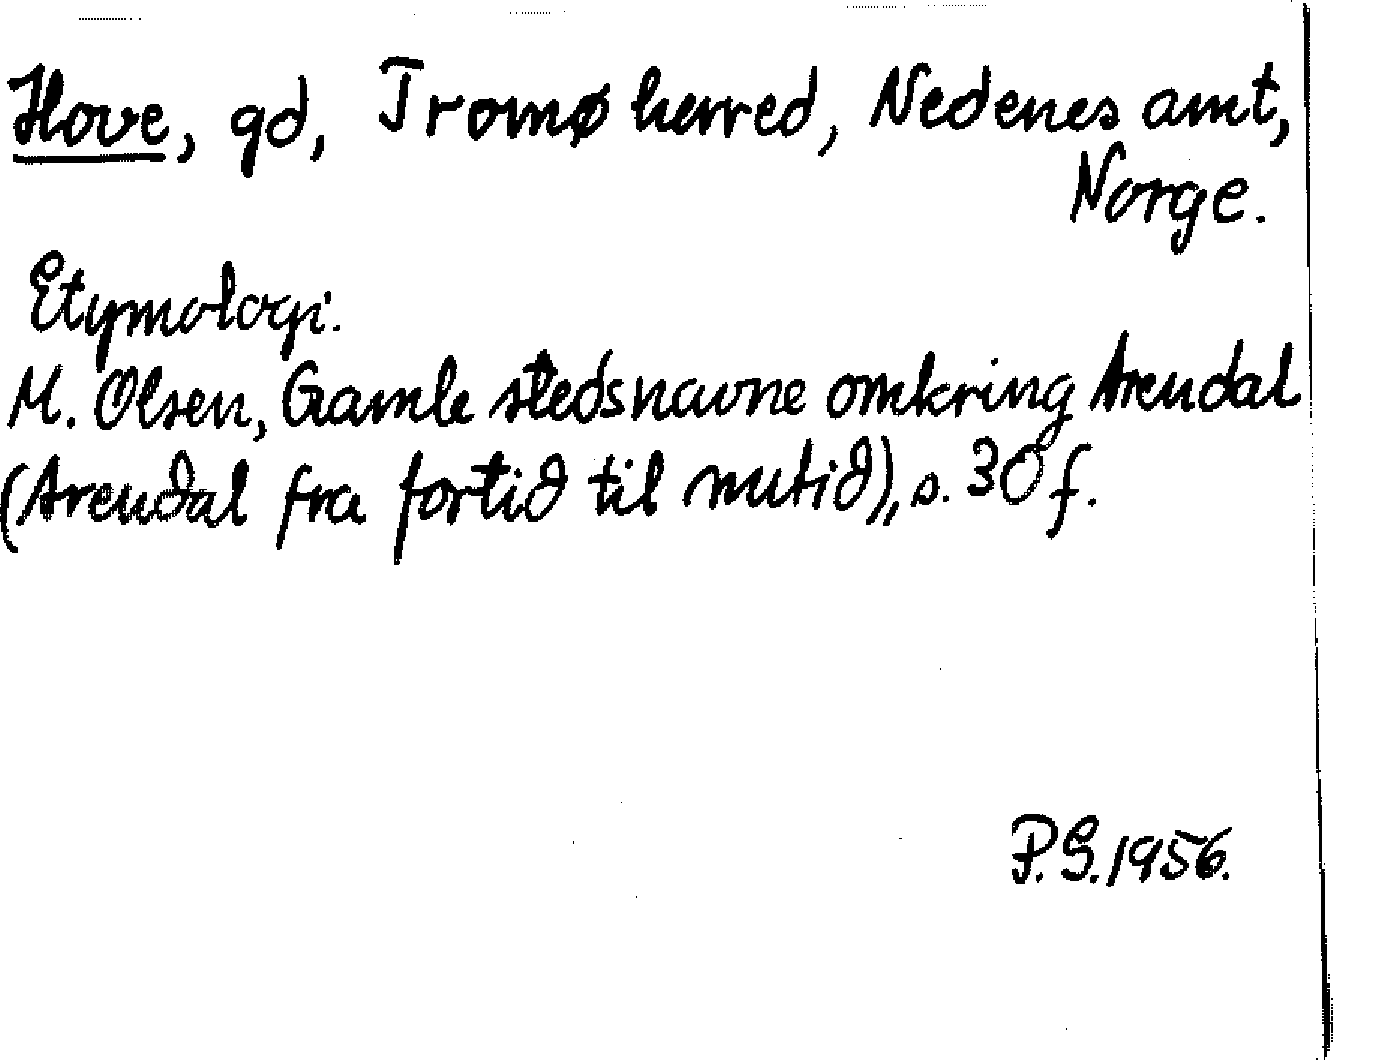 Hove, gd, Tromø herred, Nedenes amt,
Norge.
Etymologi.
M. Olsen, Gamle stedsnavne omkring Arendal
(Arendal fra fortid til nutid), s. 30 f.
P.S. 1956.